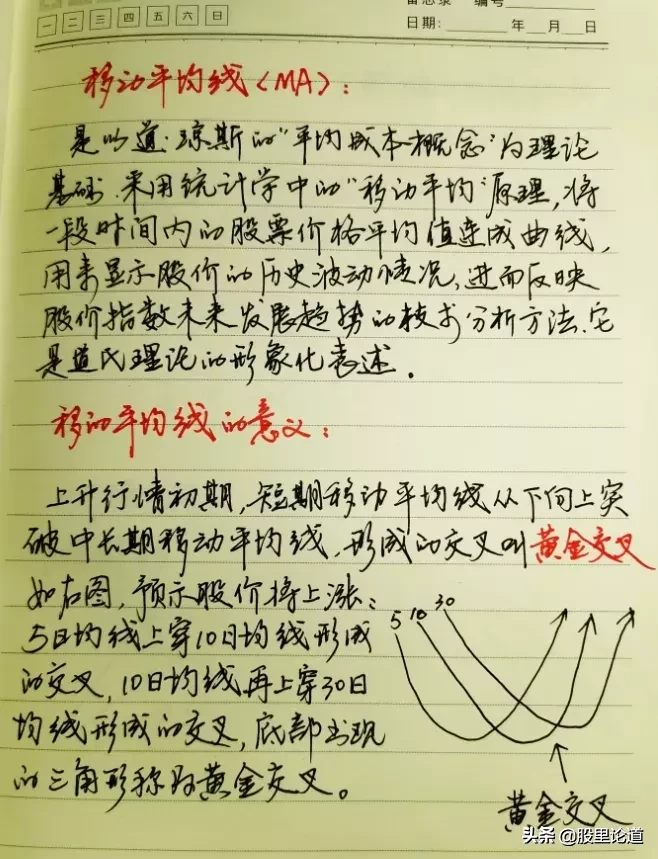 备忘录 编号
一 二 三 四 五 六 日
日期: 年 月 日
移动平均线(MA):
是以道·琼斯的"平均成本概念"为理论
基础,采用统计学中的"移动平均"原理,将
一段时间内的股票价格平均值连成曲线,
用来显示股价的历史波动情况,进而反映
股价指数未来发展趋势的技术分析方法.它
是道氏理论的形象化表述.
移动平均线的意义:
上升行情初期,短期移动平均线从下向上突
破中长期移动平均线,形成的交叉叫黄金交叉
如右图,预示股价将上涨:
5日均线上穿10日均线形成
的交叉,10日均线再上穿30日
均线形成的交叉,底部出现
的三角形称为黄金交叉。
5 10 30
黄金交叉
头条 @股里论道